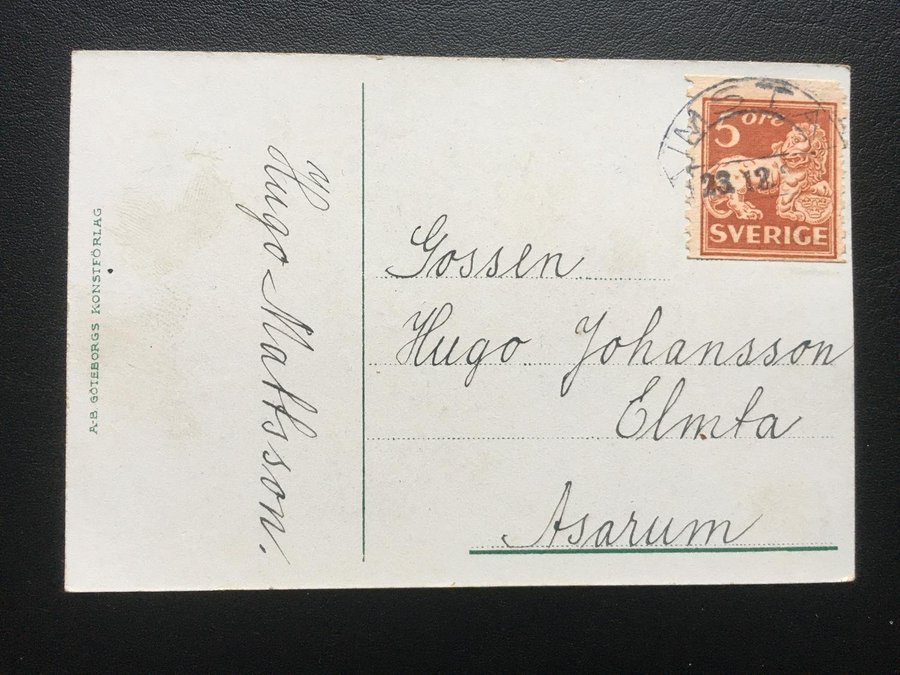 A-B. GÖTEBORGS KONSTFÖRLAG
Hugo Mattsson.
5 öre
SVERIGE
23 12
Gossen
Hugo Johansson
Elmta
Asarum